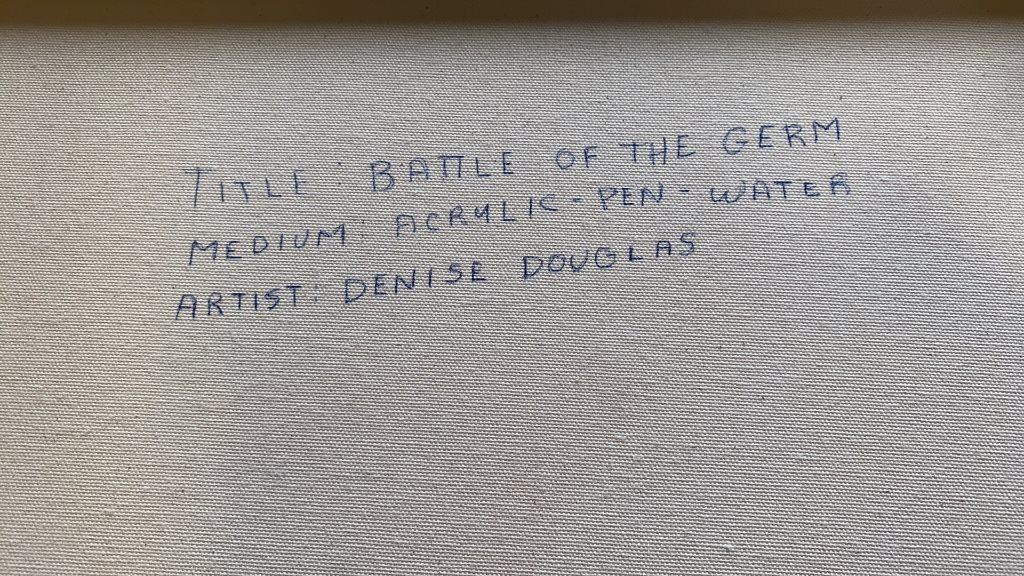 TITLE: BATTLE OF THE GERM
MEDIUM: ACRYLIC - PEN - WATER
ARTIST: DENISE DOUGLAS